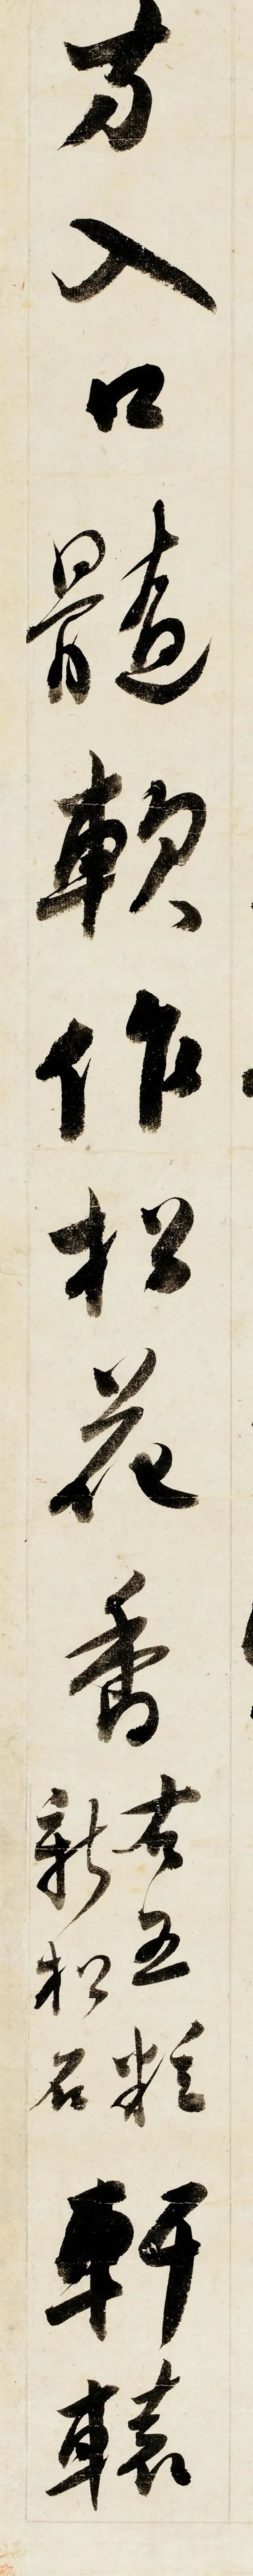 方入口髓軟作松花香
右五粒
新松石
軒轅